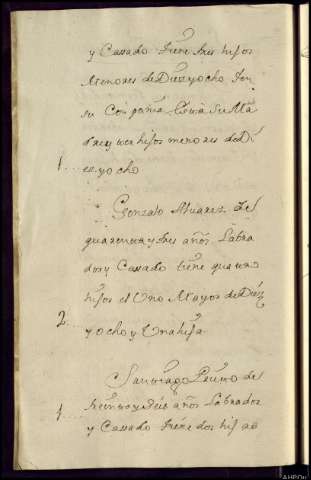 y Cassado tiene tres hijos
Menores de Diezyocho ten
su Compañia Su Ma
dre y tres hijos menores de Di
1 ezyocho
Gonzalo Alvarez de
quarenta y tres años Labra
dor y Cassado tiene quatro
hijos el Uno Mayor de Diéz
2 yocho y Una hija
Santiago de
1 treinta y seis años Labrador
y Cassado tiene dos hijas